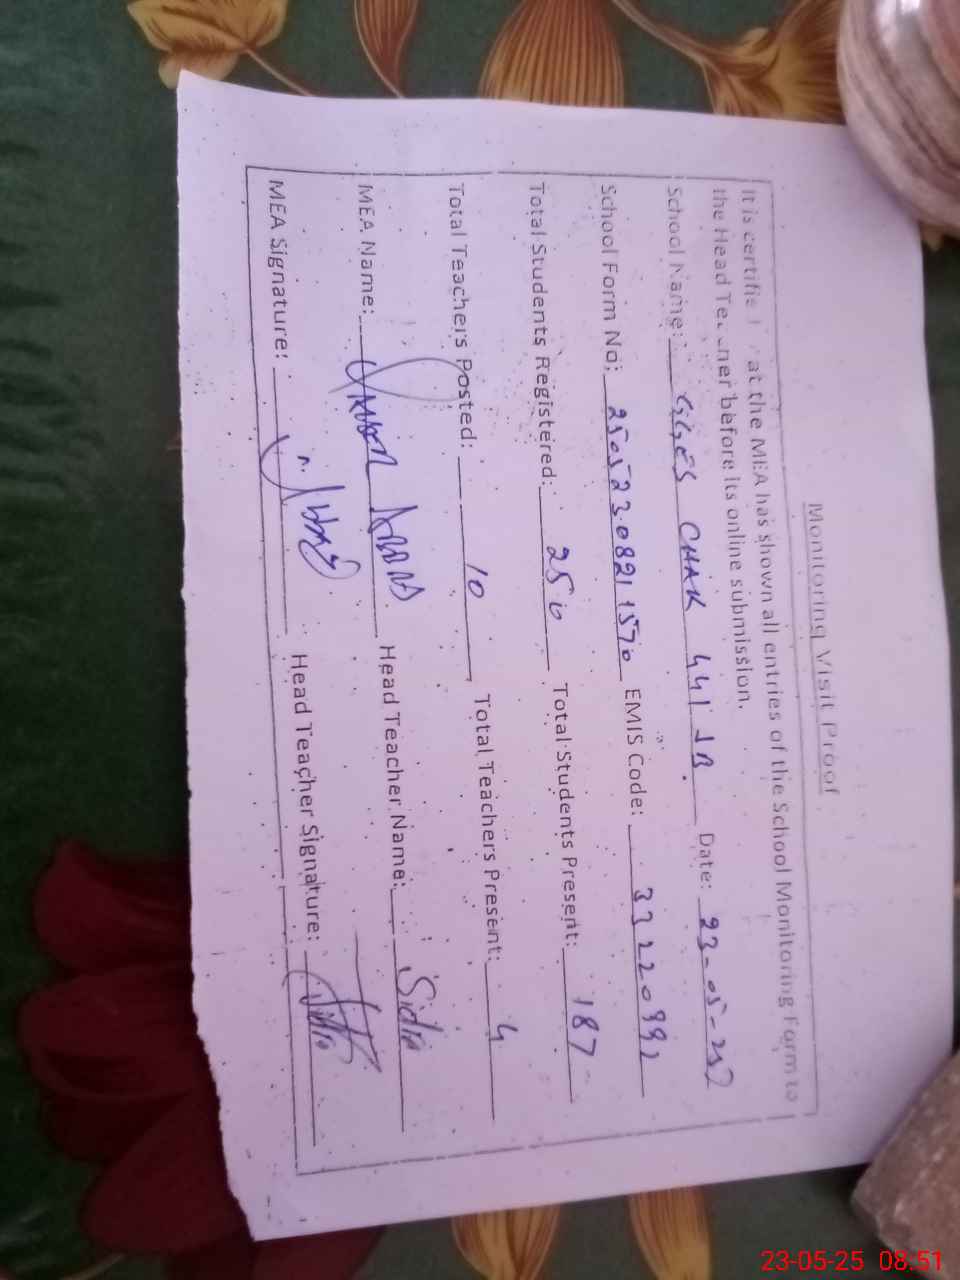 Monitoring Visit Proof
It is certifie at the MEA has shown all entries of the School Monitoring Form to
the Head Te ner before its online submission.
School Name: GGES CHAK 441 JB Date: 23-05-25
School Form No: 25052308211570 EMIS Code: 33220992
Total Students Registered: 250 Total Students Present: 187
Total Teachers Posted: 10 Total Teachers Present: 4
MEA Name: Head Teacher Name: Sidra
MEA Signature: Head Teacher Signature:
23-05-25 08:51